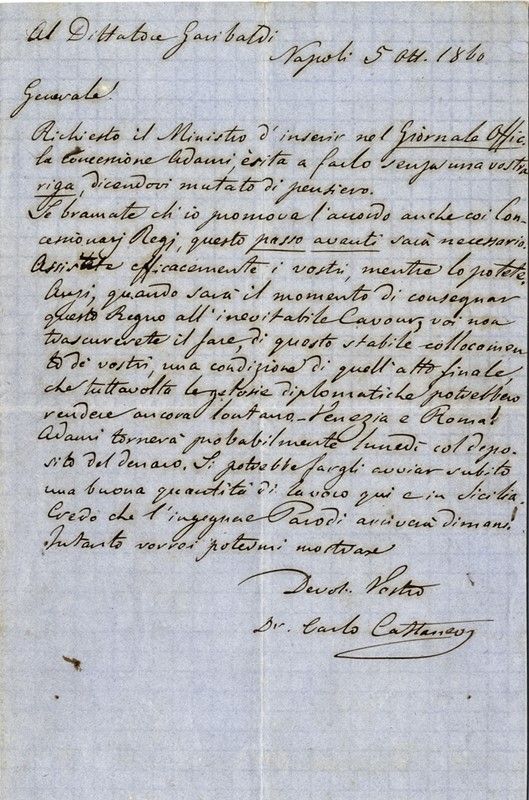 Al Dittatore Garibaldi
Napoli 5 Ott. 1860
Generale!
Richiesto il Ministro d'inserir nel Giornale Offic.
la concessione Adami ésita a farlo senza una vostra
riga, dicendovi mutato di pensiero.
Se bramate ch'io promova l'accordo anche coi Con-
cessionarj Regj, questo passo avanti sarà necessario.
Assistete efficacemente i vostri, mentre lo potete.
Anzi, quando sarà il momento di consegnar
questo Regno all'inevitabile Cavour, voi non
trascurerete il fare, di questo stabile collocamen
to de' vostri, una condizione di quell'atto finale,
che tuttavolta le gelosie diplomatiche potrebbero
rendere ancora lontano. Venezia e Roma!
Adami tornerà probabilmente lunedì col depo-
sito del denaro. Si potrebbe fargli avviar subito
una buona quantità di lavoro qui e in Sicilia
Credo che l'ingegner Parodi arriverà dimani.
Intanto vorrei potermi mostrare
Devot. Vostro
Dr. Carlo Cattaneo